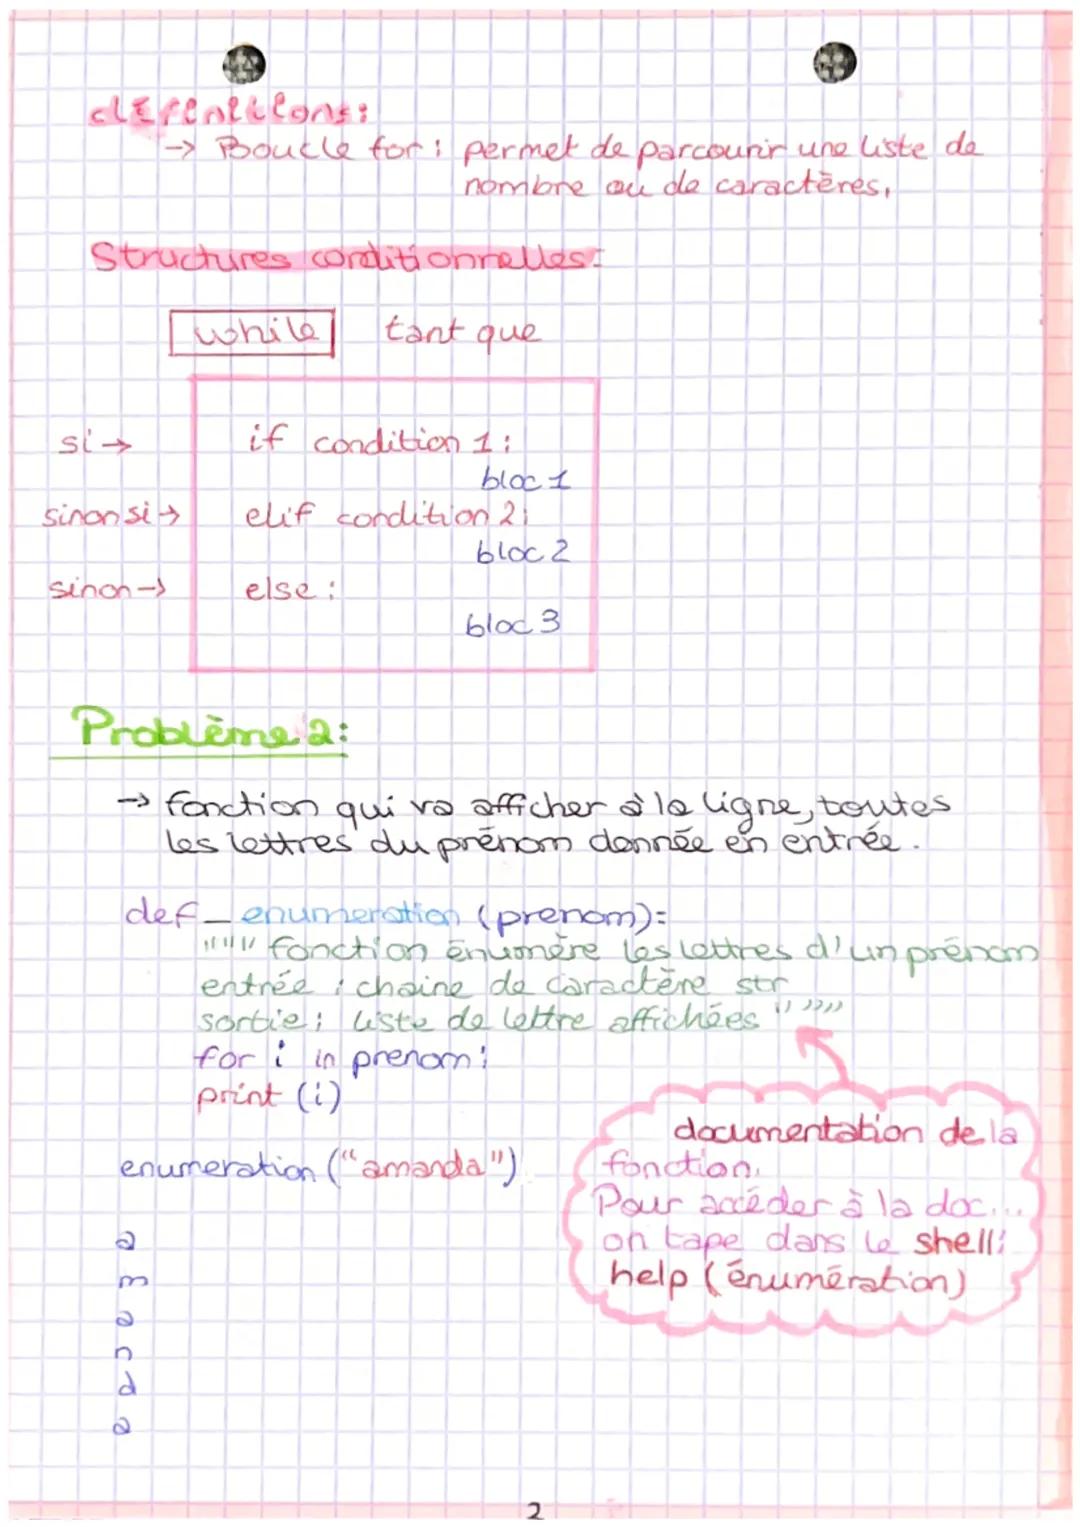 définitions:
→ Boucle for : permet de parcourir une liste de
nombre ou de caractères,
Structures conditionnelles:
while tant que
si → if condition 1 :
bloc 1
sinon si → elif condition 2:
bloc 2
sinon → else :
bloc 3
Problème 2:
→ fonction qui va afficher à la ligne, toutes
les lettres du prénom donnée en entrée.
def_enumeration (prenom):
""" fonction énumère les lettres d'un prénom
entrée : chaine de caractère str
sortie: liste de lettre affichées """
for i in prenom:
print (i)
enumeration ("amanda")
a
m
a
n
d
a
documentation de la
fonction.
Pour accéder à la doc...
on tape dans le shell:
help (énumération)
2